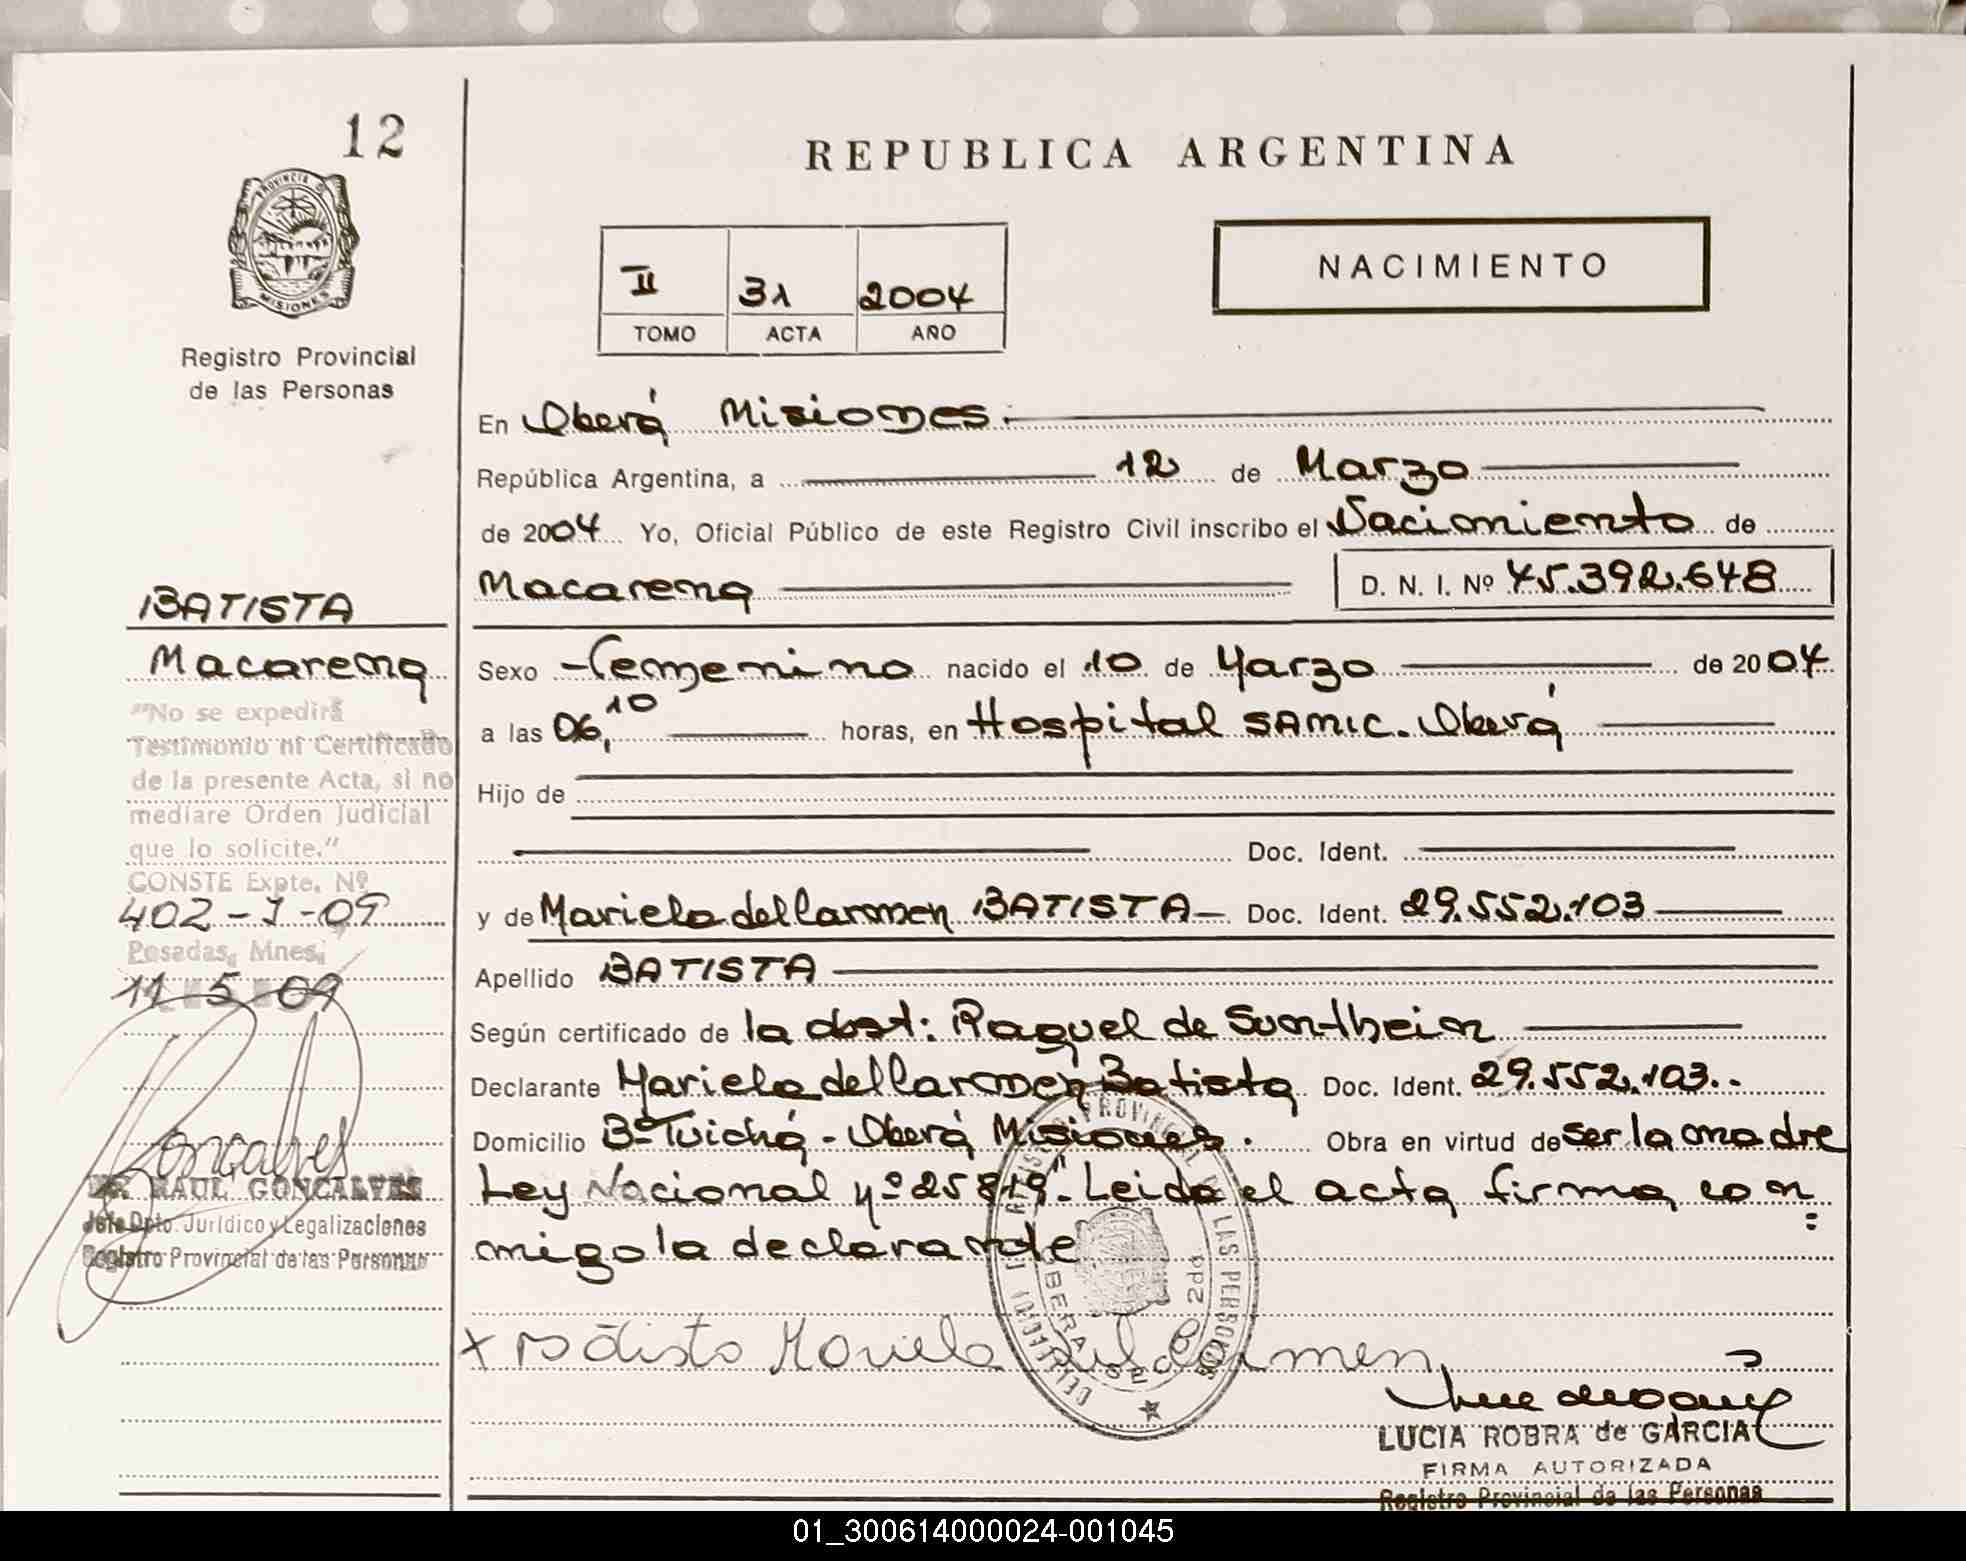 12
PROVINCIA DE
MISIONES
Registro Provincial
de las Personas
REPUBLICA ARGENTINA
II 31 2004
TOMO ACTA AÑO
NACIMIENTO
En Oberá Misiones.
República Argentina, a 12 de Marzo
de 2004 Yo, Oficial Público de este Registro Civil inscribo el Nacimiento de
Macarena D. N. I. Nº 45.392.648
Sexo Femenino nacido el 10 de Marzo de 2004
a las 06,10 horas, en Hospital SAMIC. Oberá
Hijo de
Doc. Ident.
y de Mariela del Carmen BATISTA Doc. Ident. 29.552.103
Apellido BATISTA
Según certificado de la obst: Raquel de Sontheim
Declarante Mariela del Carmen Batista Doc. Ident. 29.552.103..
Domicilio Bº Tuichá - Oberá Misiones. Obra en virtud de ser la madre
Ley Nacional Nº 25819". Leida el acta firma con
migo la declarante
x Batista Mariela del Carmen
LUCIA ROBRA de GARCIA
FIRMA AUTORIZADA
Registro Provincial de las Personas
BATISTA
Macarena
"No se expedirá
Testimonio ni Certificado
de la presente Acta, si no
mediare Orden Judicial
que lo solicite."
CONSTE Expte. Nº
402-J-09
Posadas, Mnes,
11-5-09
Goncalves
Dr. RAUL GONCALVES
Jefe Dpto. Jurídico y Legalizaciones
Registro Provincial de las Personas
01_300614000024-001045